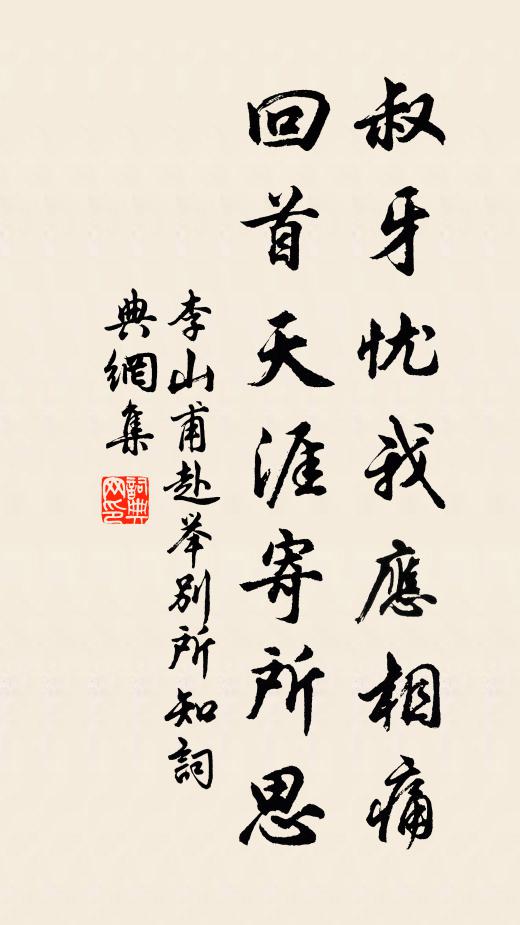 叔牙忧我應相痛
回首天涯寄所思
李山甫赴举别所知詞
典網集
詞典网印